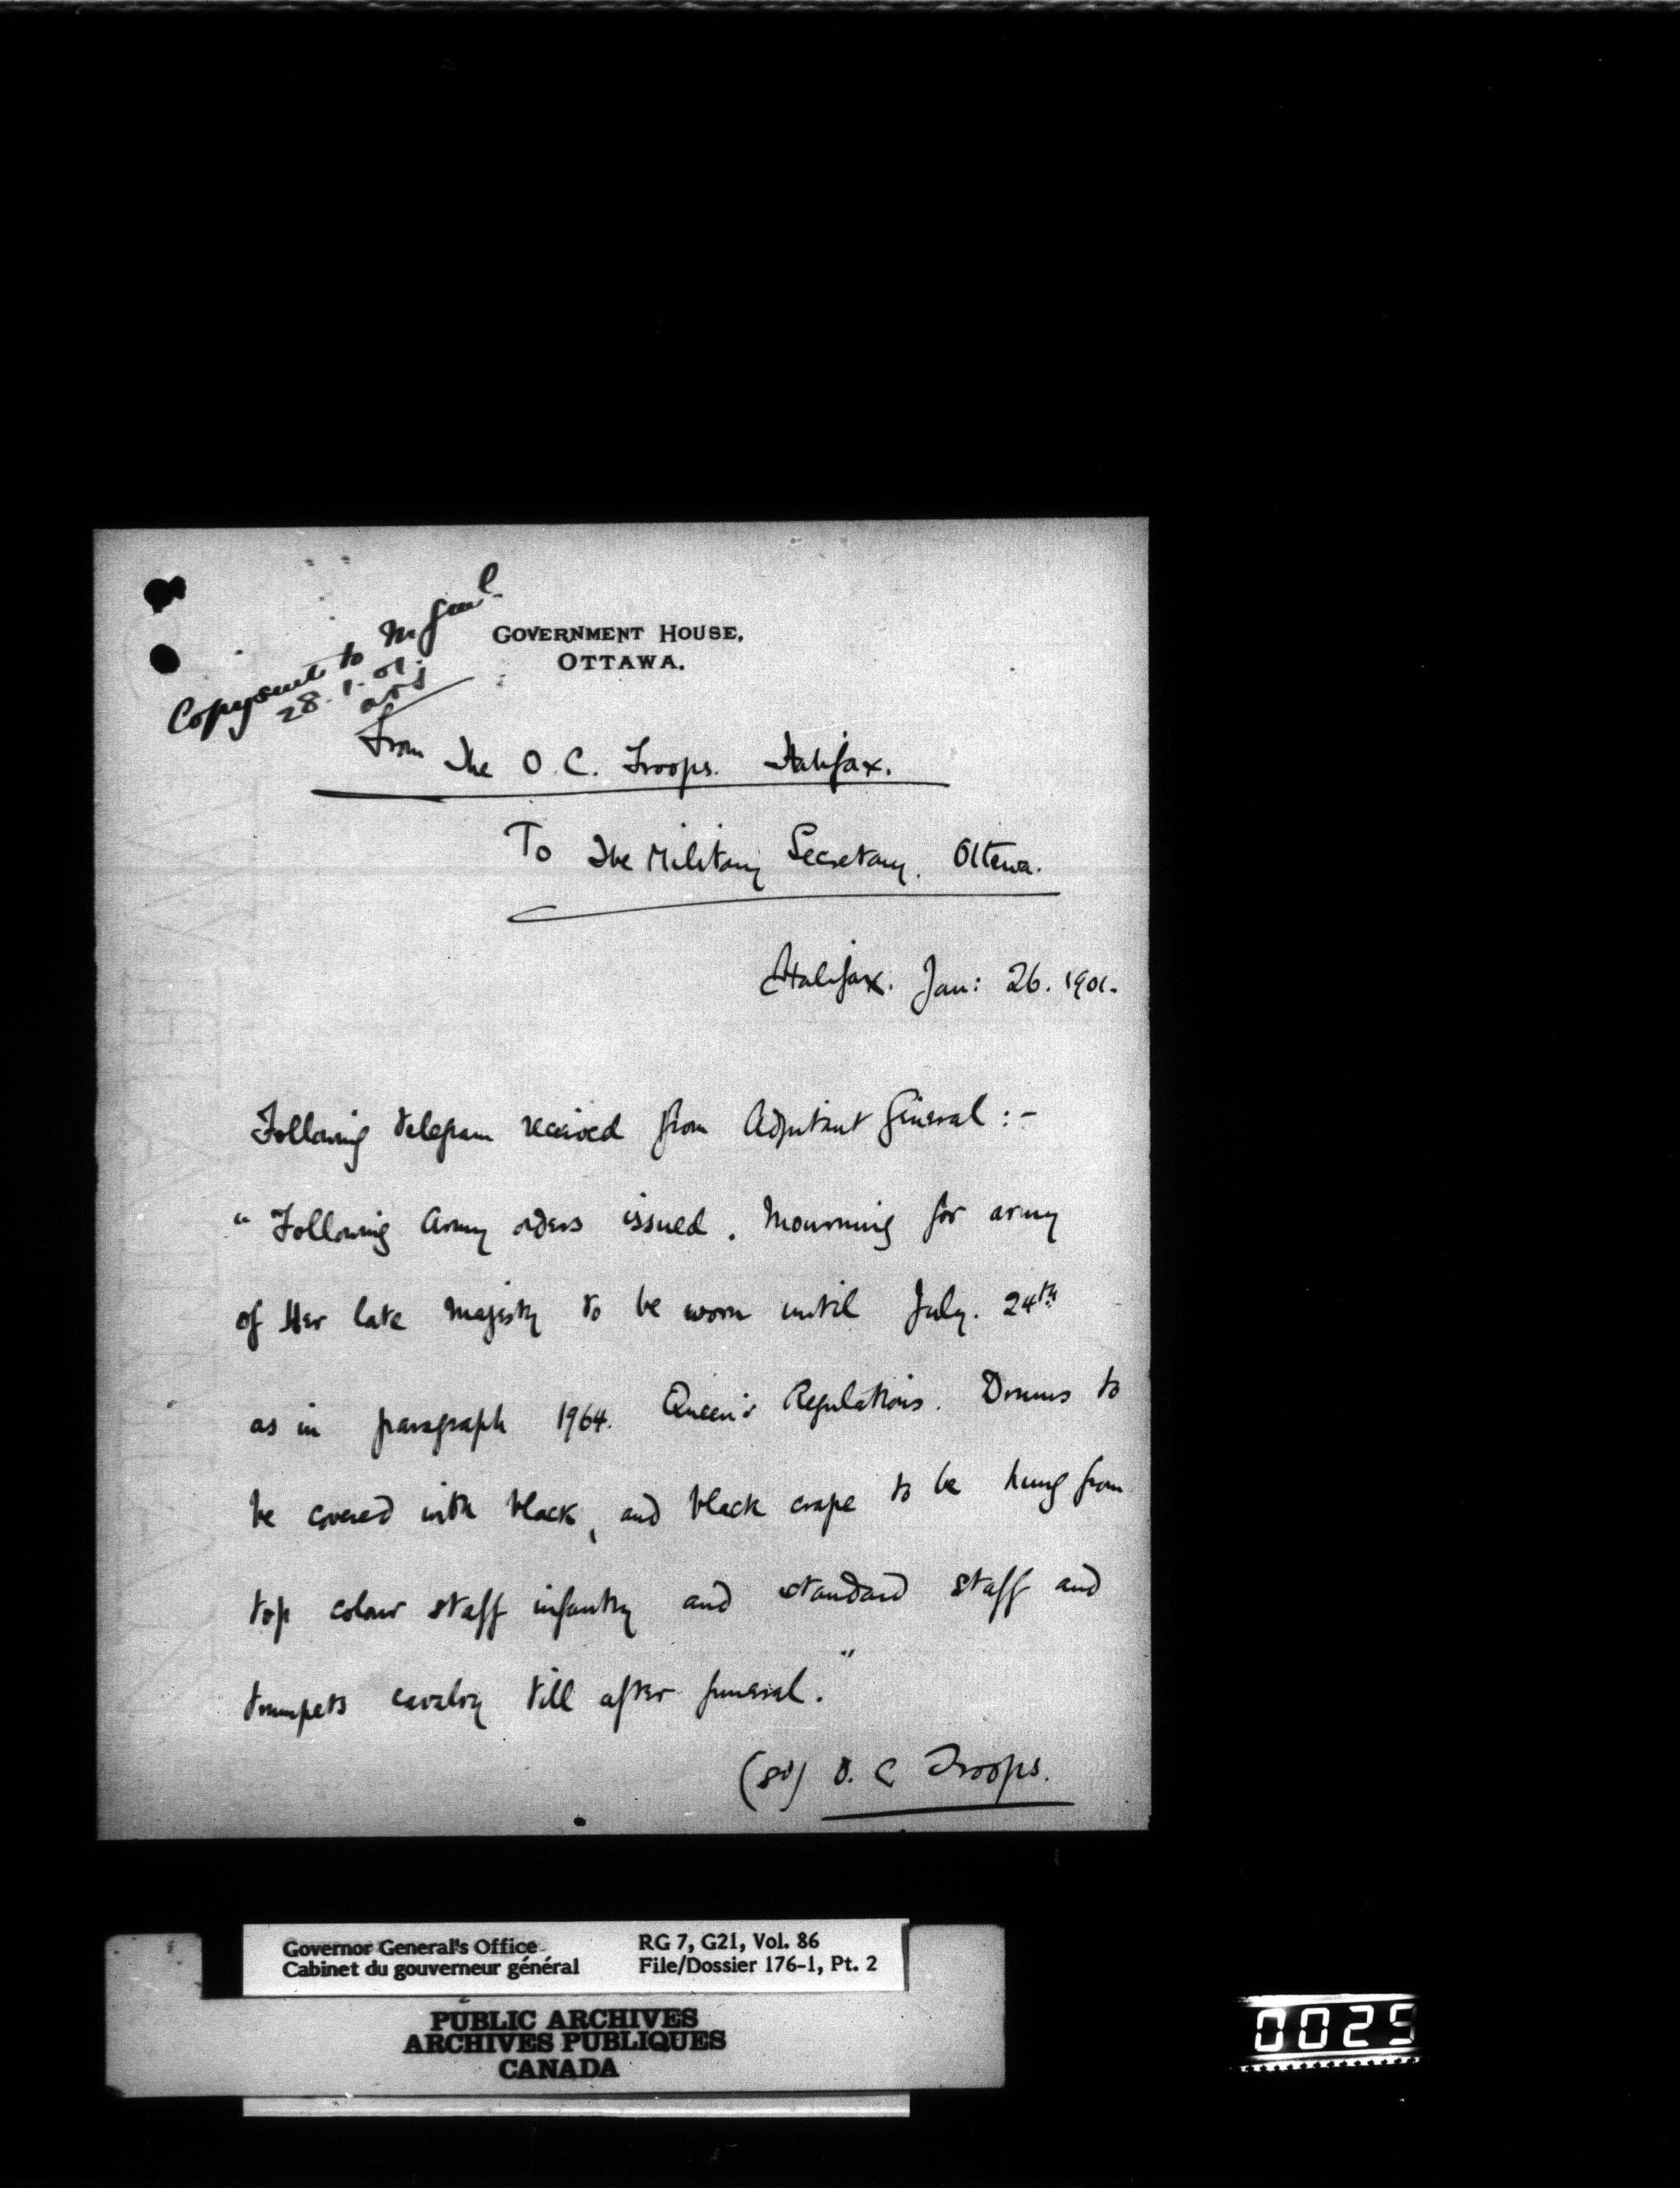 Copy sent to M Genl
28.1.01.
GOVERNMENT HOUSE,
OTTAWA.
From The O.C. Troops. Halifax.
To The Military Secretary. Ottawa.
Halifax. Jan: 26. 1901.
Following telegram received from Adjutant General :-
"Following Army orders issued. Mourning for army
of Her late Majesty to be worn until July. 24th
as in paragraph 1964. Queen's Regulations. Drums to
be covered with black, and black crape to be hung from
top colour staff infantry and standard staff and
trumpets cavalry till after funeral."
(sd) O. C Troops.
Governor General's Office
Cabinet du gouverneur général
RG 7, G21, Vol. 86
File/Dossier 176-1, Pt. 2
PUBLIC ARCHIVES
ARCHIVES PUBLIQUES
CANADA
0025